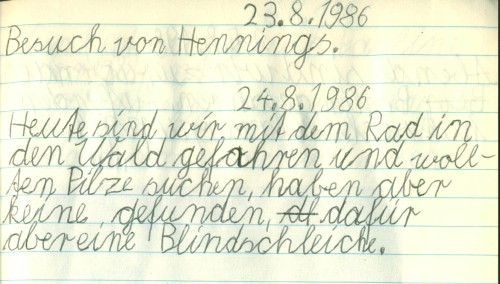 23.8.1986
Besuch von Hennings.
24.8.1986
Heute sind wir mit dem Rad in
den Wald gefahren und woll-
ten Pilze suchen, haben aber
keine gefunden, dafür
aber eine Blindschleiche.